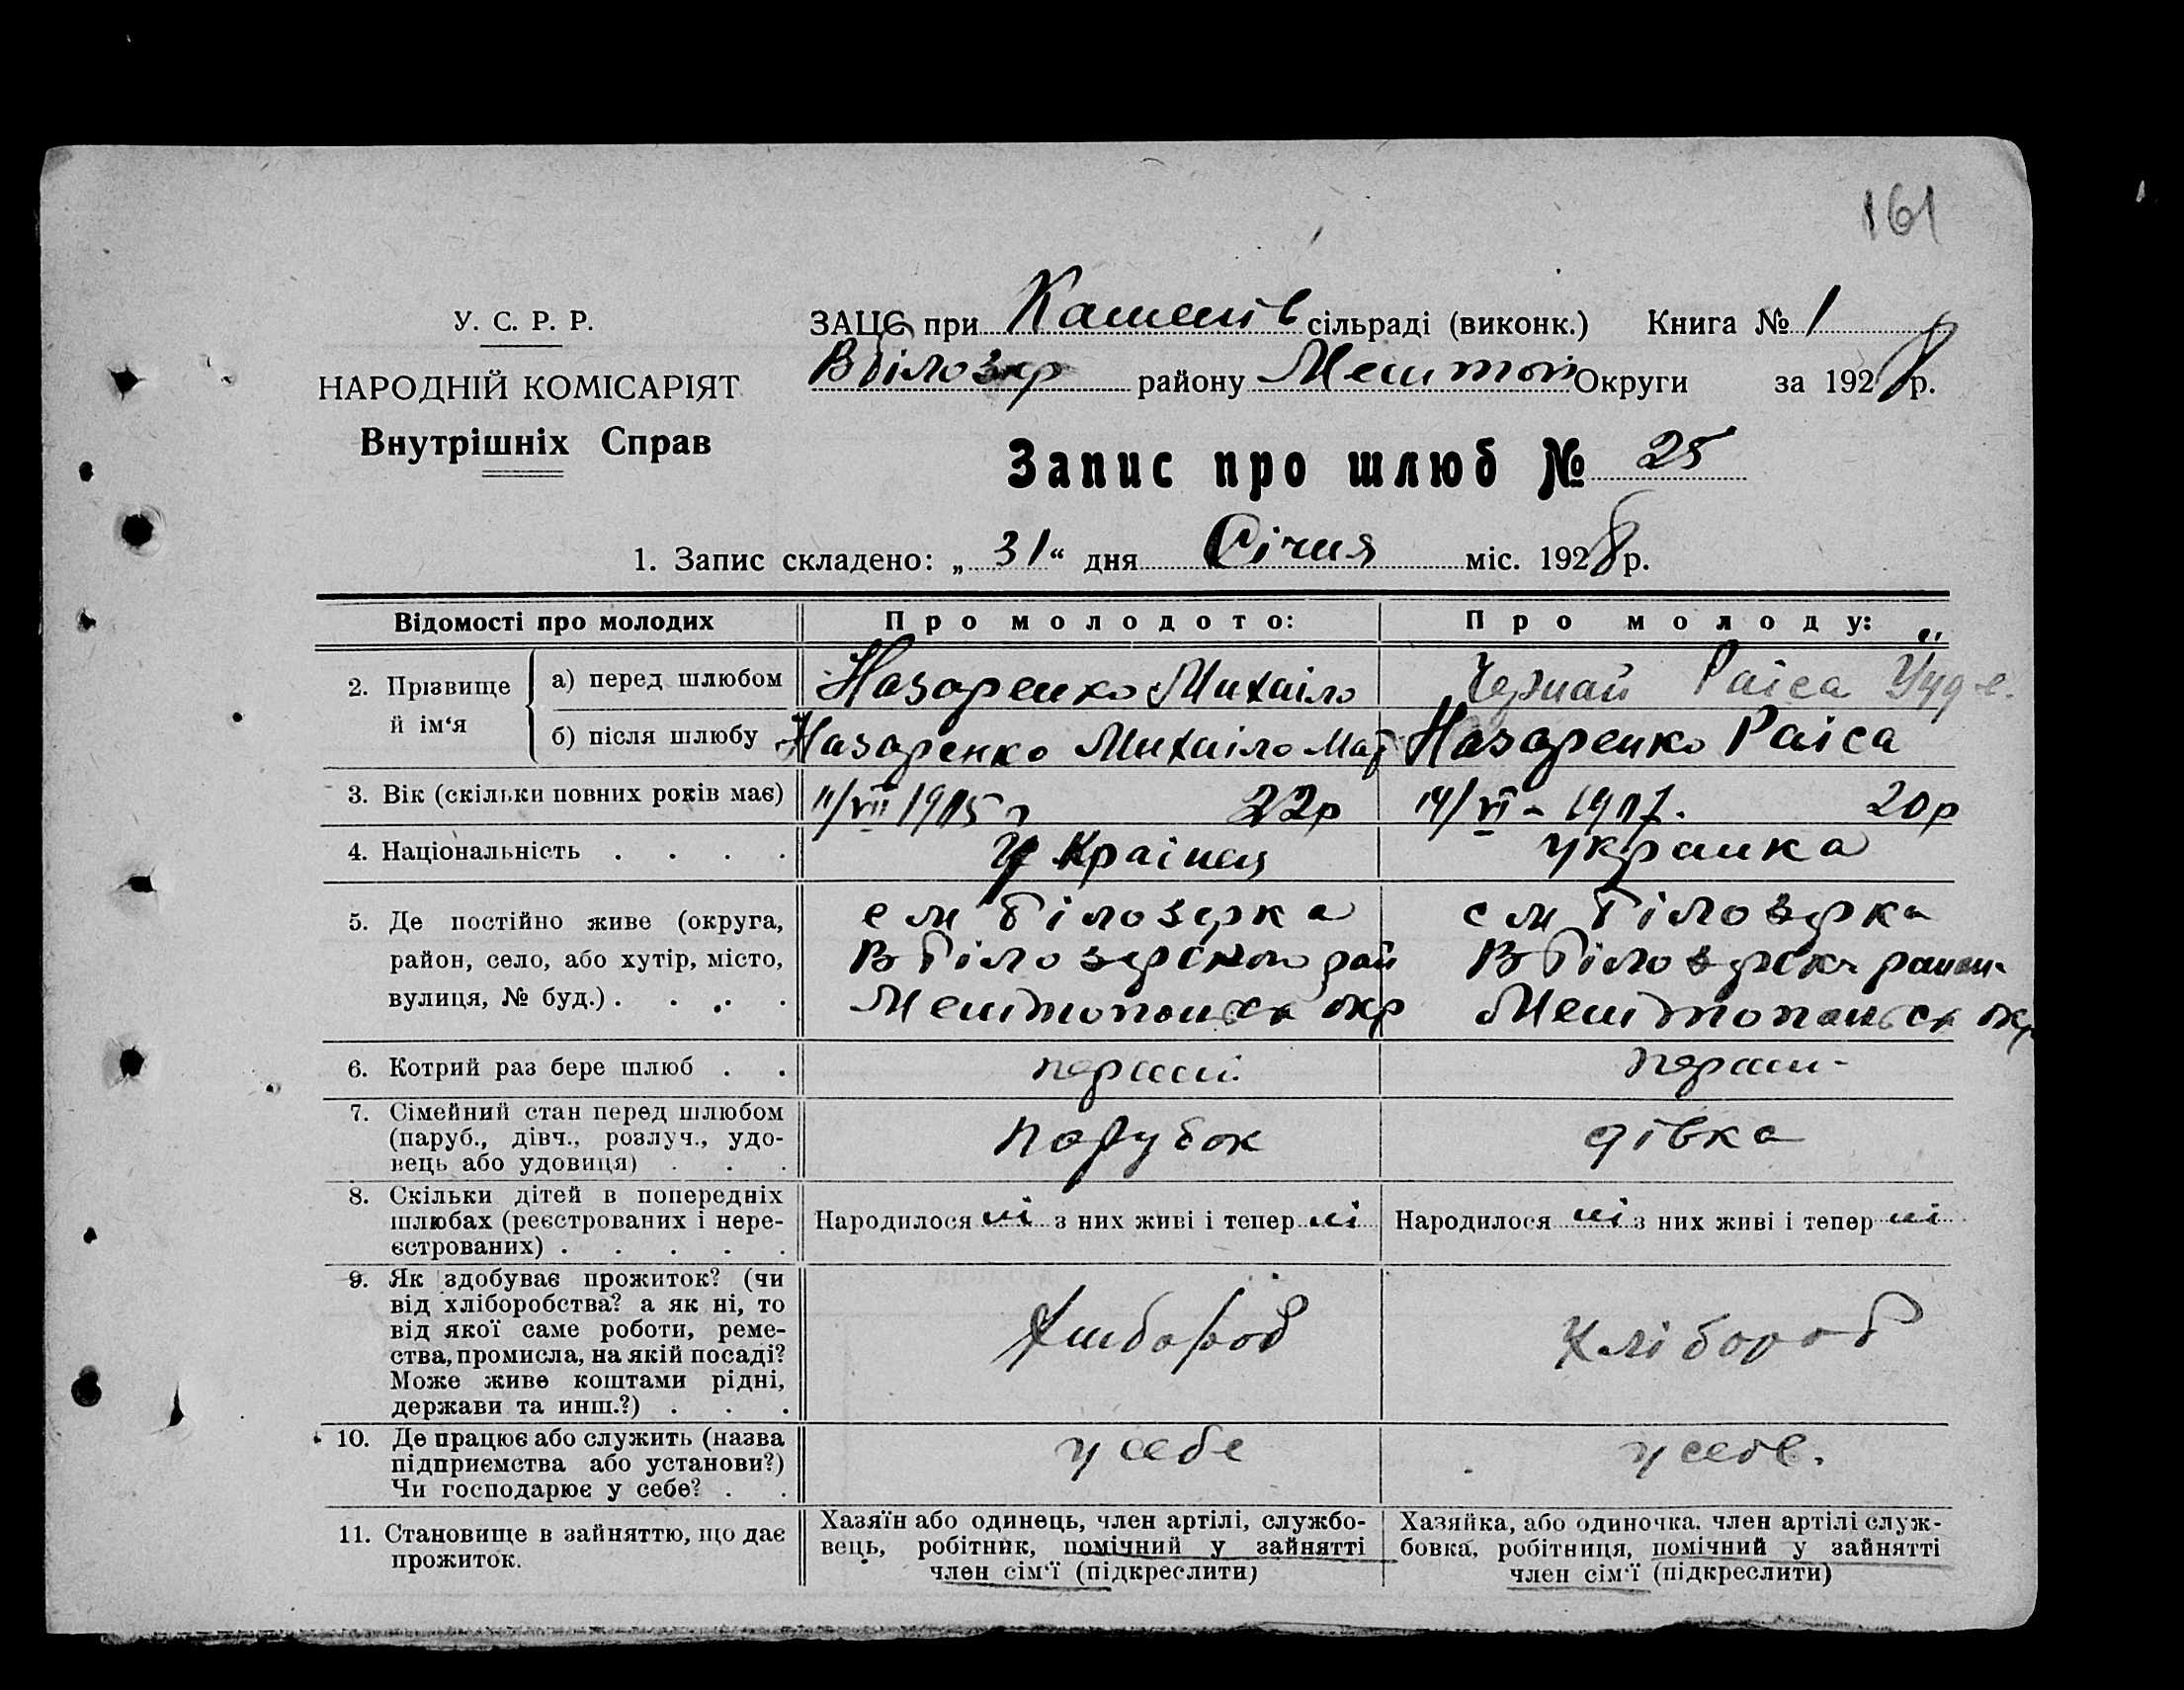 161
У. С. Р. Р.
НАРОДНІЙ КОМІСАРІЯТ
Внутрішніх Справ
ЗАЦС при сільраді (виконк.) Книга № 1
ВБілозер району Меліттоп Округи за 1928 р.
Запис про шлюб № 25
1. Запис складено: „31“ дня Січня міс. 1928 р.
Відомості про молодих
Про молодого:
Про молоду:
2. Прізвище й ім‘я
а) перед шлюбом
Назаренко Михаіло
Раіса
б) після шлюбу
Назаренко Михаіло
Назаренко Раіса
3. Вік (скільки повних років має)
11/VII 1905 р 22р
14/VI - 1907. 20р
4. Національність . . . .
Украінец
украинка
5. Де постійно живе (округа,
район, село, або хутір, місто,
вулиця, № буд.) . . . .
с м Білозерка
ВБілозерского рай
Мелітопольск окр
с м Білозерка
ВБілозерск район
Мелітопольск окр
6. Котрий раз бере шлюб . .
перший
перши-
7. Сімейний стан перед шлюбом
(паруб., дівч., розлуч., удо-
вець або удовиця) . . .
парубок
дівка
8. Скільки дітей в попередніх
шлюбах (реєстрованих і нере-
єстрованих) . . . . .
Народилося ні з них живі і тепер ні
Народилося ні з них живі і тепер ні
9. Як здобуває прожиток? (чи
від хліборобства? а як ні, то
від якої саме роботи, реме-
ства, промисла, на якій посаді?
Може живе коштами рідні,
держави та инш.?) . . .
Хлібороб
Хлібороб
10. Де працює або служить (назва
підприємства або установи?)
Чи господарює у себе? . .
у себе
у себе.
11. Становище в зайняттю, що дає
прожиток.
Хазяїн або одинець, член артілі, службо-
вець, робітник, помічний у зайнятті
член сім‘ї (підкреслити)
Хазяйка, або одиночка. член артілі служ-
бовка, робітниця, помічний у зайнятті
член сім‘ї (підкреслити)